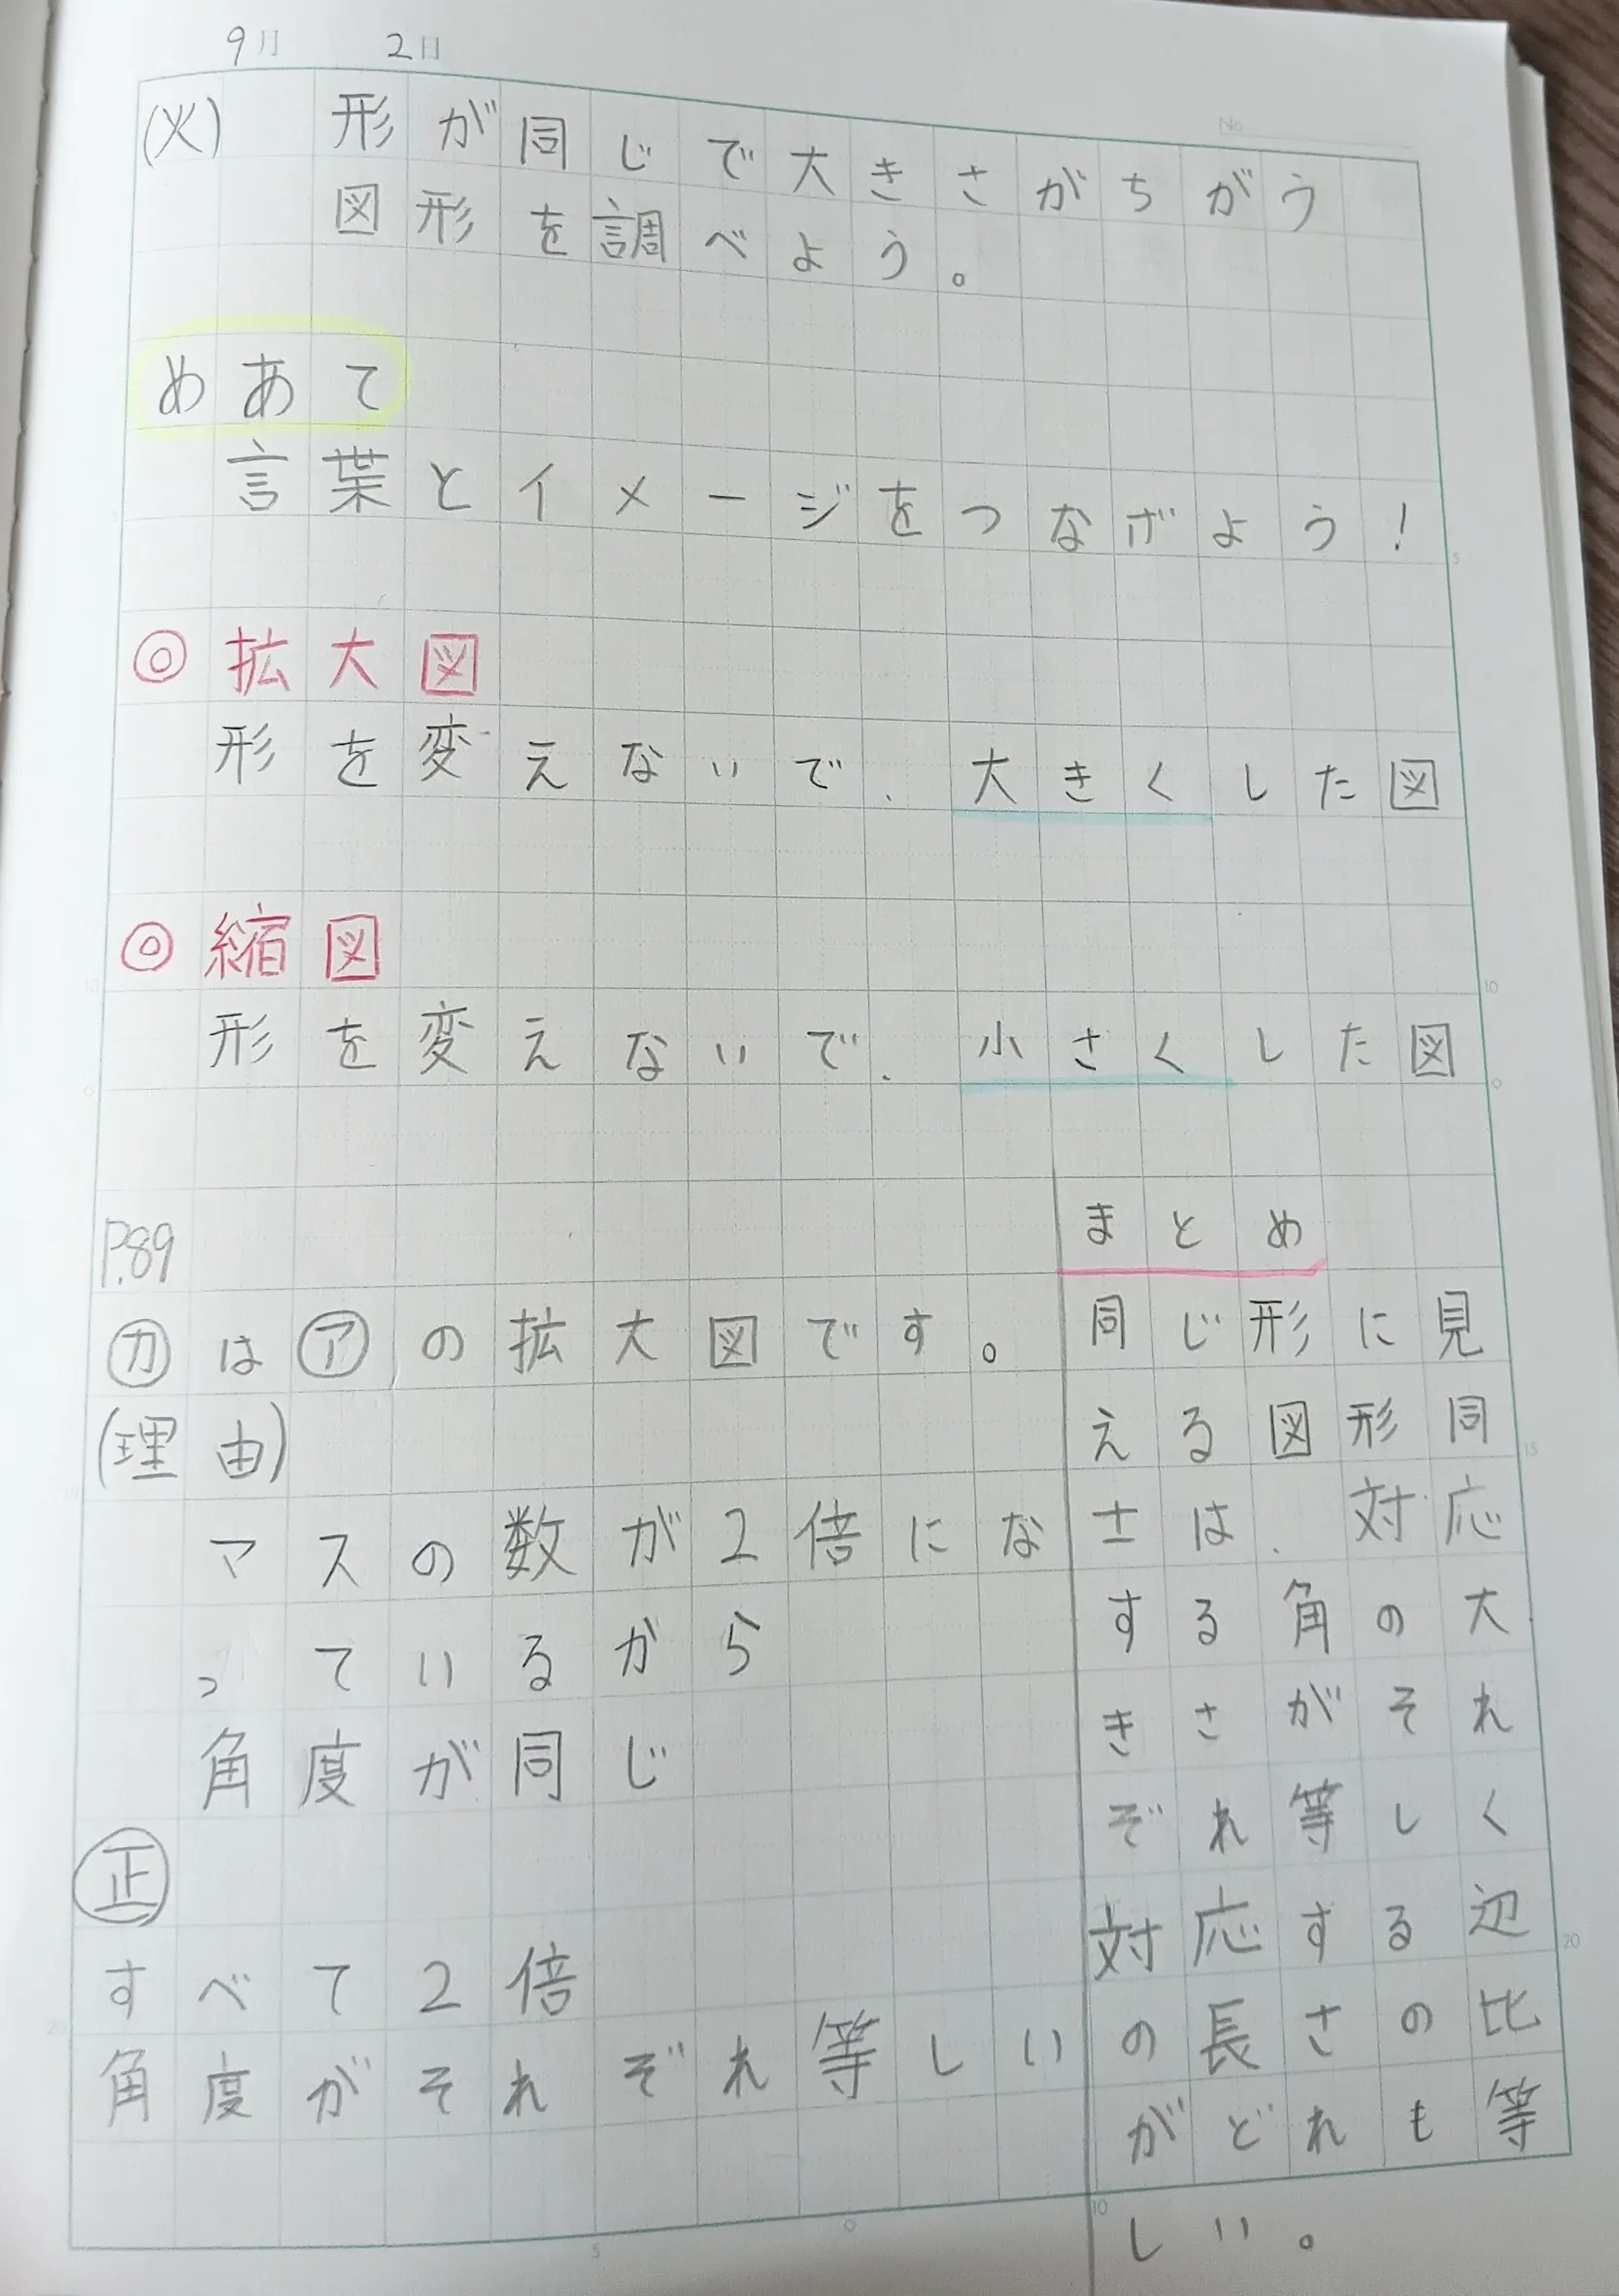 9月 2日
No.
(火) 形が同じで大きさがちがう
図形を調べよう。
めあて
言葉とイメージをつなげよう!
◎拡大図
形を変えないで、大きくした図
◎縮図
形を変えないで、小さくした図
P.89
㋕は㋐の拡大図です。
(理由)
マスの数が2倍にな
っているから
角度が同じ
㊣
すべて2倍
角度がそれぞれ等しい
まとめ
同じ形に見
える図形同
士は、対応
する角の大
きさがそれ
ぞれ等しく
対応する辺
の長さの比
がどれも等
しい。
5
10
15
20
5
10